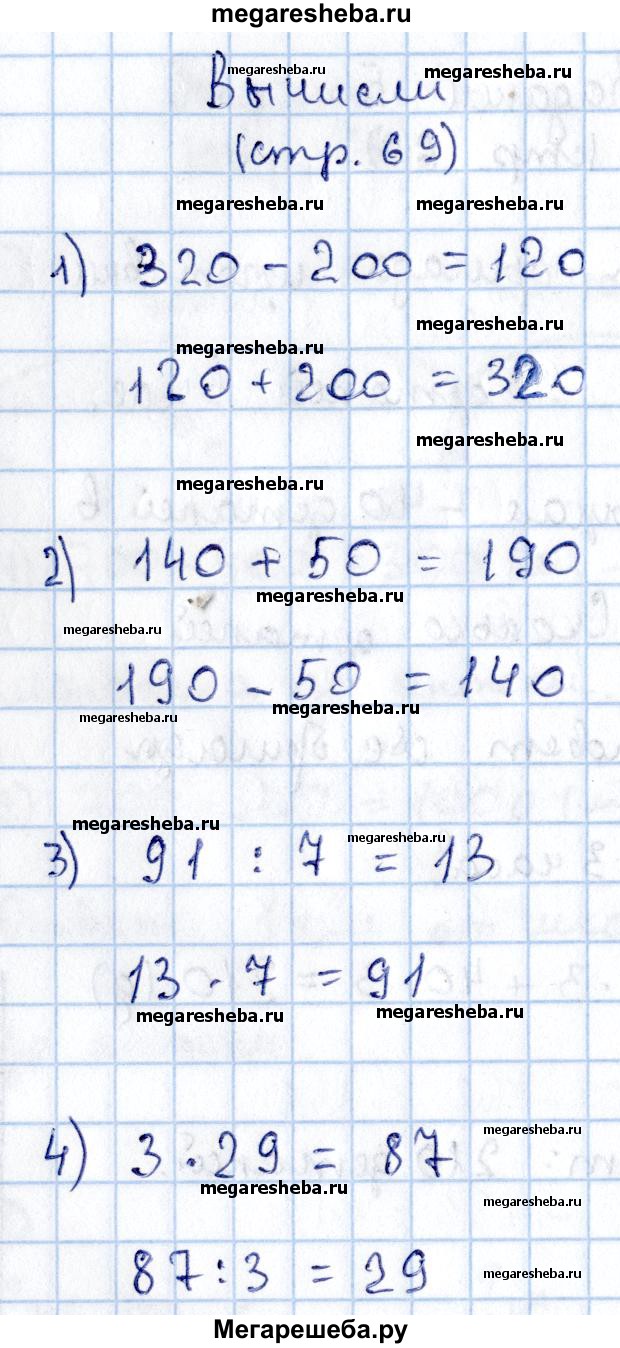 megaresheba.ru
Вычисли
megaresheba.ru megaresheba.ru
(стр. 69)
megaresheba.ru megaresheba.ru
1) 320 - 200 = 120
megaresheba.ru
megaresheba.ru
120 + 200 = 320
megaresheba.ru
megaresheba.ru
2) 140 + 50 = 190
megaresheba.ru
megaresheba.ru
190 - 50 = 140
megaresheba.ru megaresheba.ru
megaresheba.ru megaresheba.ru
3) 91 : 7 = 13
13 · 7 = 91
megaresheba.ru megaresheba.ru
megaresheba.ru
4) 3 · 29 = 87
megaresheba.ru
megaresheba.ru
87 : 3 = 29
megaresheba.ru
Мегарешеба.ру